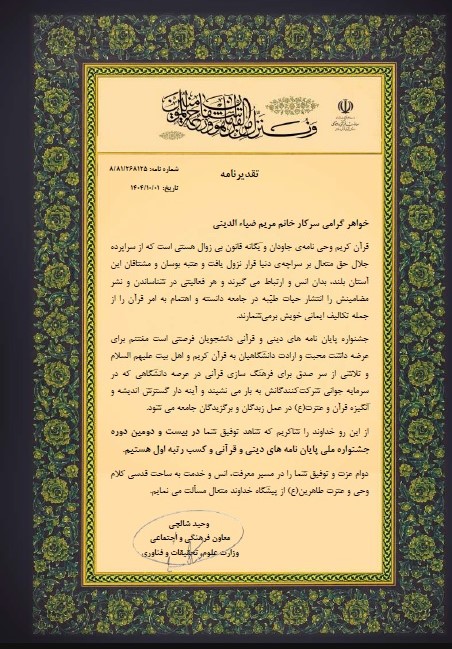 وننزل من القرآن ما هو شفاء ورحمة للمؤمنین
تقدیرنامه
شماره نامه: ۸/۸۱/۲۶۸۱۲۵
تاریخ: ۱۴۰۴/۱۰/۰۱
خواهر گرامی سرکار خانم مریم ضیاء الدینی
قرآن کریم وحی نامه‌ی جاودان و یگانه قانون بی زوال هستی است که از سراپرده
جلال حق متعال بر سراچه‌ی دنیا قرار نزول یافت و عتبه بوسان و مشتاقان این
آستان بلند، بدان انس و ارتباط می گیرند و هر فعالیتی در شناساندن و نشر
مضامینش را انتشار حیات طیّبه در جامعه دانسته و اهتمام به امر قرآن را از
جمله تکالیف ایمانی خویش برمی‌شمارند.
جشنواره پایان نامه های دینی و قرآنی دانشجویان فرصتی است مغتنم برای
عرضه داشت محبت و ارادت دانشگاهیان به قرآن کریم و اهل بیت علیهم السلام
و تلاشی از سر صدق برای فرهنگ سازی قرآنی در عرصه دانشگاهی که در
سرمایه جوانی شرکت‌کنندگانش به بار می نشیند و آینه دار گسترش اندیشه و
انگیزه قرآن و عترت(ع) در عمل زبدگان و برگزیدگان جامعه می شود.
از این رو خداوند را شاکریم که شاهد توفیق شما در بیست و دومین دوره
جشنواره ملی پایان نامه های دینی و قرآنی و کسب رتبه اول هستیم.
دوام عزت و توفیق شما را در مسیر معرفت، انس و خدمت به ساحت قدسی کلام
وحی و عترت طاهرین(ع) از پیشگاه خداوند متعال مسألت می نمایم.
وحید شالچی
معاون فرهنگی و اجتماعی
وزارت علوم، تحقیقات و فناوری